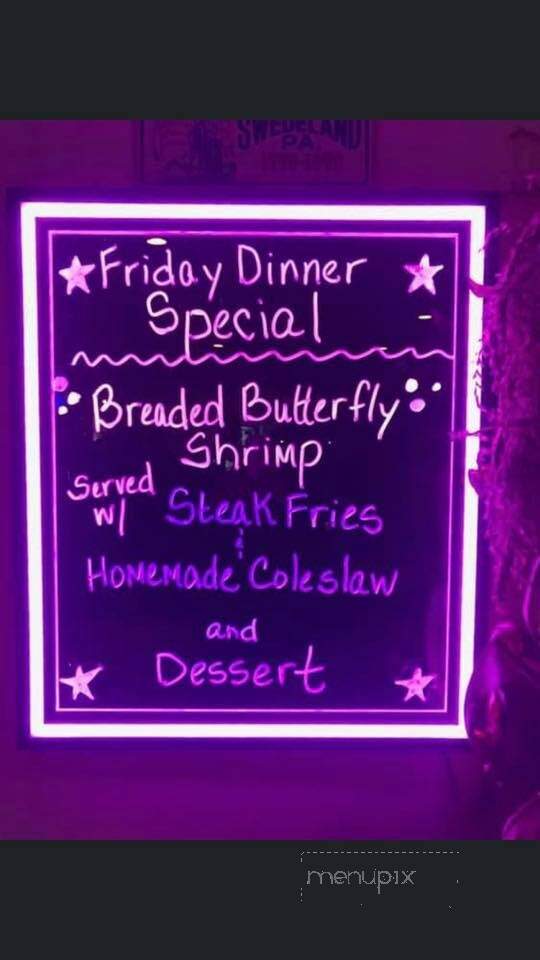 SWEDELAND
PA
Friday Dinner
Special
Breaded Butterfly
Shrimp
Served
w/ Steak Fries
&
Homemade Coleslaw
and
Dessert
menupix